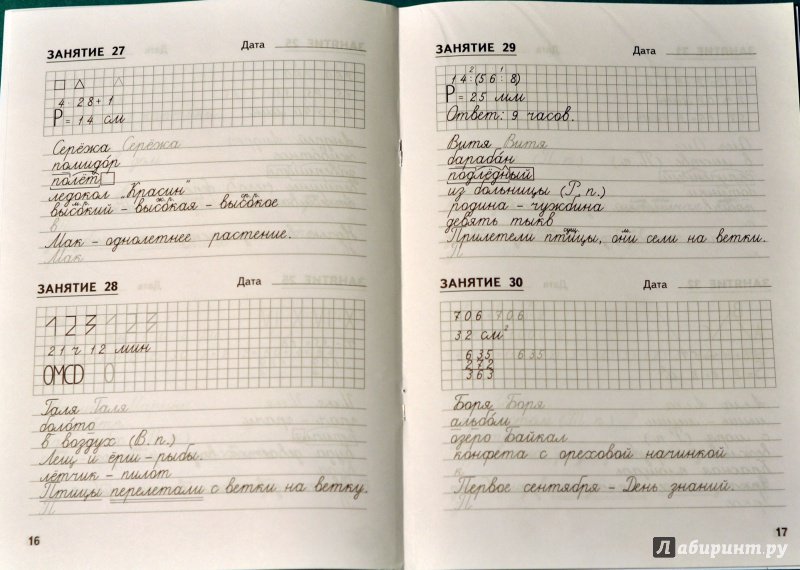 ЗАНЯТИЕ 27 Дата
4 · 28 + 1
P = 14 см
Серёжа Серёжа
помидор
полёт
ледокол „Красин"
м.р. ж.р. ср.р.
высокий – высокая – высокое
в
Мак – однолетнее растение.
Мак
ЗАНЯТИЕ 28 Дата
1 2 3 1 2 3
21 ч 12 мин
Галя Галя
болото
в воздух (В. п.)
Лещ и ёрш – рыбы.
лётчик – пилот
Птицы перелетали с ветки на ветку.
П
16
ЗАНЯТИЕ 29 Дата
2 1
14 : (56 : 8)
P = 25 мм
Ответ: 9 часов.
Витя Витя
барабан
подлёдный
из больницы (Р. п.)
родина – чужбина
девять тыкв
Прилетели птицы, они сели на ветки.
П
ЗАНЯТИЕ 30 Дата
706 706
32 см²
635 635
272
363
Боря Боря
альбом
озеро Байкал
конфета с ореховой начинкой
к
Первое сентября – День знаний.
П
17
Лабиринт.ру